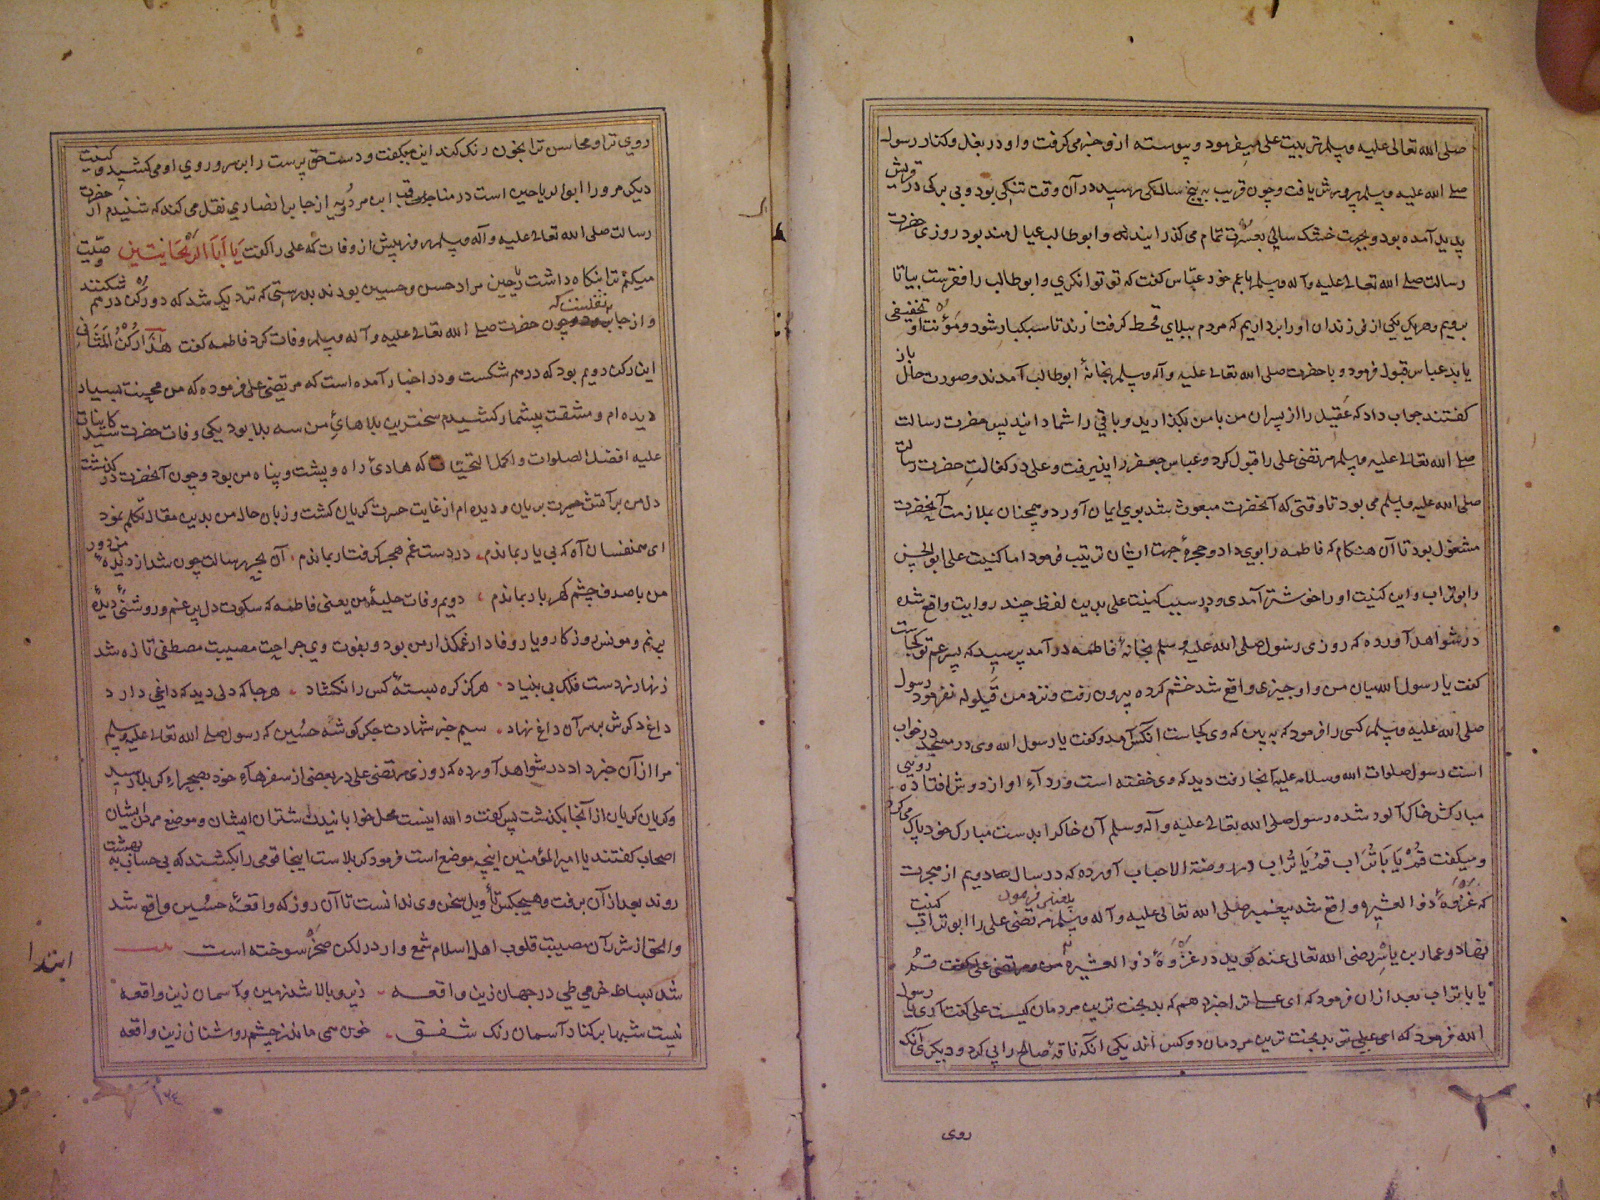 صلی الله تعالی علیه وسلم تربیت علی میفرمود و پیوسته از وی خبر می گرفت و او در بغل و کنار رسول
صلی الله علیه وسلم پرورش یافت و چون قریب به پنج سالگی رسید در آن وقت تنگی بود و بی برگی در قریش
پدید آمده بود و بجهت خشک سالی بعسرت تمام می گذرانیدند و ابوطالب عیال مند بود روزی حضرت
رسالت صلی الله تعالی علیه وآله وسلم با عم خود عباس گفت که تو توانگری و ابوطالب را فقر است بیا تا
برویم و هر یک یکی از فرزندان او را برداریم که مردم ببلای قحط گرفتارند تا سبکبار شود و مؤنت او تخفیفی
یابد عباس قبول فرمود و با حضرت صلی الله تعالی علیه وآله وسلم بخانهٔ ابوطالب آمدند و صورت حال باز
گفتند جواب داد که عقیل را از پسران من با من بگذارید و باقی را شما دانید پس حضرت رسالت
صلی الله تعالی علیه وسلم مرتضی علی را قبول کرد و عباس جعفر را پذیرفت و علی در کفالت حضرت رسالت
صلی الله علیه وسلم می بود تا وقتی که آنحضرت مبعوث شد بوی ایمان آورد و همچنان بملازمت آنحضرت
مشغول بود تا آن هنگام که فاطمه را بوی داد و حجرهٔ جهت ایشان ترتیب فرمود اما کنیت علی ابوالحسن
و ابوتراب و این کنیت او را خوشتر آمدی و در سبب کنیت علی بدین لفظ چند روایت واقع شده
در شواهد آورده که روزی رسول صلی الله علیه وسلم بخانهٔ فاطمه درآمد پرسید که پسر عم تو کجاست
گفت یا رسول الله میان من و او چیزی واقع شد خشم کرده بیرون رفت و نزد من قیلوله نفرمود رسول
صلی الله علیه وسلم کسی را فرمود که ببین که وی کجاست آنکس آمد و گفت یا رسول الله وی در مسجد در خواب
است رسول صلوات الله وسلامه علیه آنجا رفت دید که وی خفته است و رداء او از دوش افتاده روی
مبارکش خاک آلود شده رسول صلی الله تعالی علیه وآله وسلم آن خاک را بدست مبارک خود پاک می کرد
و میگفت قم یا ابا تراب قم یا تراب در روضة الاحباب آورده که در سال دویم از هجرت
که غزوهٔ ذو العشیره واقع شد پیغمبر صلی الله تعالی علیه وآله وسلم مرتضی علی را ابو تراب کنیت
نهاد و عمار بن یاسر رضی الله تعالی عنه گوید در غزوهٔ ذو العشیره
یا ابا تراب بعد از آن فرمود که ای علی ترا خبر دهم که بدبخت ترین مردمان کیست علی گفت آری یا رسول
الله فرمود که ای علی بدبخت ترین مردمان دو کس اند یکی آنکه ناقهٔ صالح را پی کرد و دیگری آنکه
روی
روی ترا و محاسن ترا بخون رنگ کند این میگفت و دست حق پرست را بر سر و روی او می کشید و کنیت
دیگر مر ورا ابو الریاحین است در مناجات ابن مردویه از جابر انصاری نقل می کند که شنیدم از حضرت
رسالت صلی الله تعالی علیه وآله وسلم سه روز پیش از وفات که علی را گفت یا ابا الریحانتین وصیت
میکنم ترا نگاه داشت ریحین مراد حسن و حسین بودند بدرستی که نزدیک شد که دو رکن در هم شکنند
و از جابر نقلست که چون حضرت صلی الله تعالی علیه وآله وسلم وفات کرد فاطمه گفت هذا رکن الثانی
این رکن دویم بود که در هم شکست و در اخبار آمده است که مرتضی علی فرموده که من محنت بسیار
دیده ام و مشقت بیشمار کشیدم سخترین بلاهای من سه بلا بود یکی وفات حضرت سید کاینات
علیه افضل الصلوات و اکمل التحیات که هادی راه و پشت و پناه من بود و چون آنحضرت در گذشت
دل من بر آتش حیرت بریان و دیده ام از غایت حسرت گریان گشت و زبان حال من بدین مقال تکلم نمود
ای همنفسان آه که بی یار بماندم در دست غم هجر گرفتار بماندم آن بحر رسالت چون شد از دیده من دور
من با صدف چشم گهربار بماندم دویم وفات حلیلهٔ من یعنی فاطمه که سکوت دل پر غم و روشنی دیدهٔ
پر نم و مونس روزگار و یار وفادار غمگذار من بود و بفوت وی جراحت مصیبت مصطفی تازه شد
زنهار ز دست فلک بی بنیاد هرگز گره بستهٔ کس را نگشاد هر جا که دلی دید که داغی دارد
داغ دگرش بر سر آن داغ نهاد سیم خبر شهادت جگر گوشه حسین که رسول صلی الله تعالی علیه وسلم
مرا از آن خبر داد در شواهد آورده که روزی مرتضی علی در بعضی از سفرهاء خود بصحراء کربلا رسید
و گریان گریان از آنجا بگذشت پس گفت والله اینست محل خوابانیدن شتران ایشان و موضع مردن ایشان
اصحاب گفتند یا امیر المؤمنین این چه موضع است فرمود کربلاست اینجا قومی را بکشند که بی حساب به بهشت
روند بعد از آن برفت و هیچکس تأویل سخن وی ندانست تا آن روز که واقعهٔ حسین واقع شد
والحق از شرر آن مصیبت قلوب اهل اسلام شمع وار در لگن صخر سوخته است
شد بساط خرمی طی در جهان زین واقعه زیر و بالا شد زمین و آسمان زین واقعه
نیست شبها بر کنار آسمان رنگ شفق خون همی ماند ز چشم روشنان زین واقعه
ابتدا